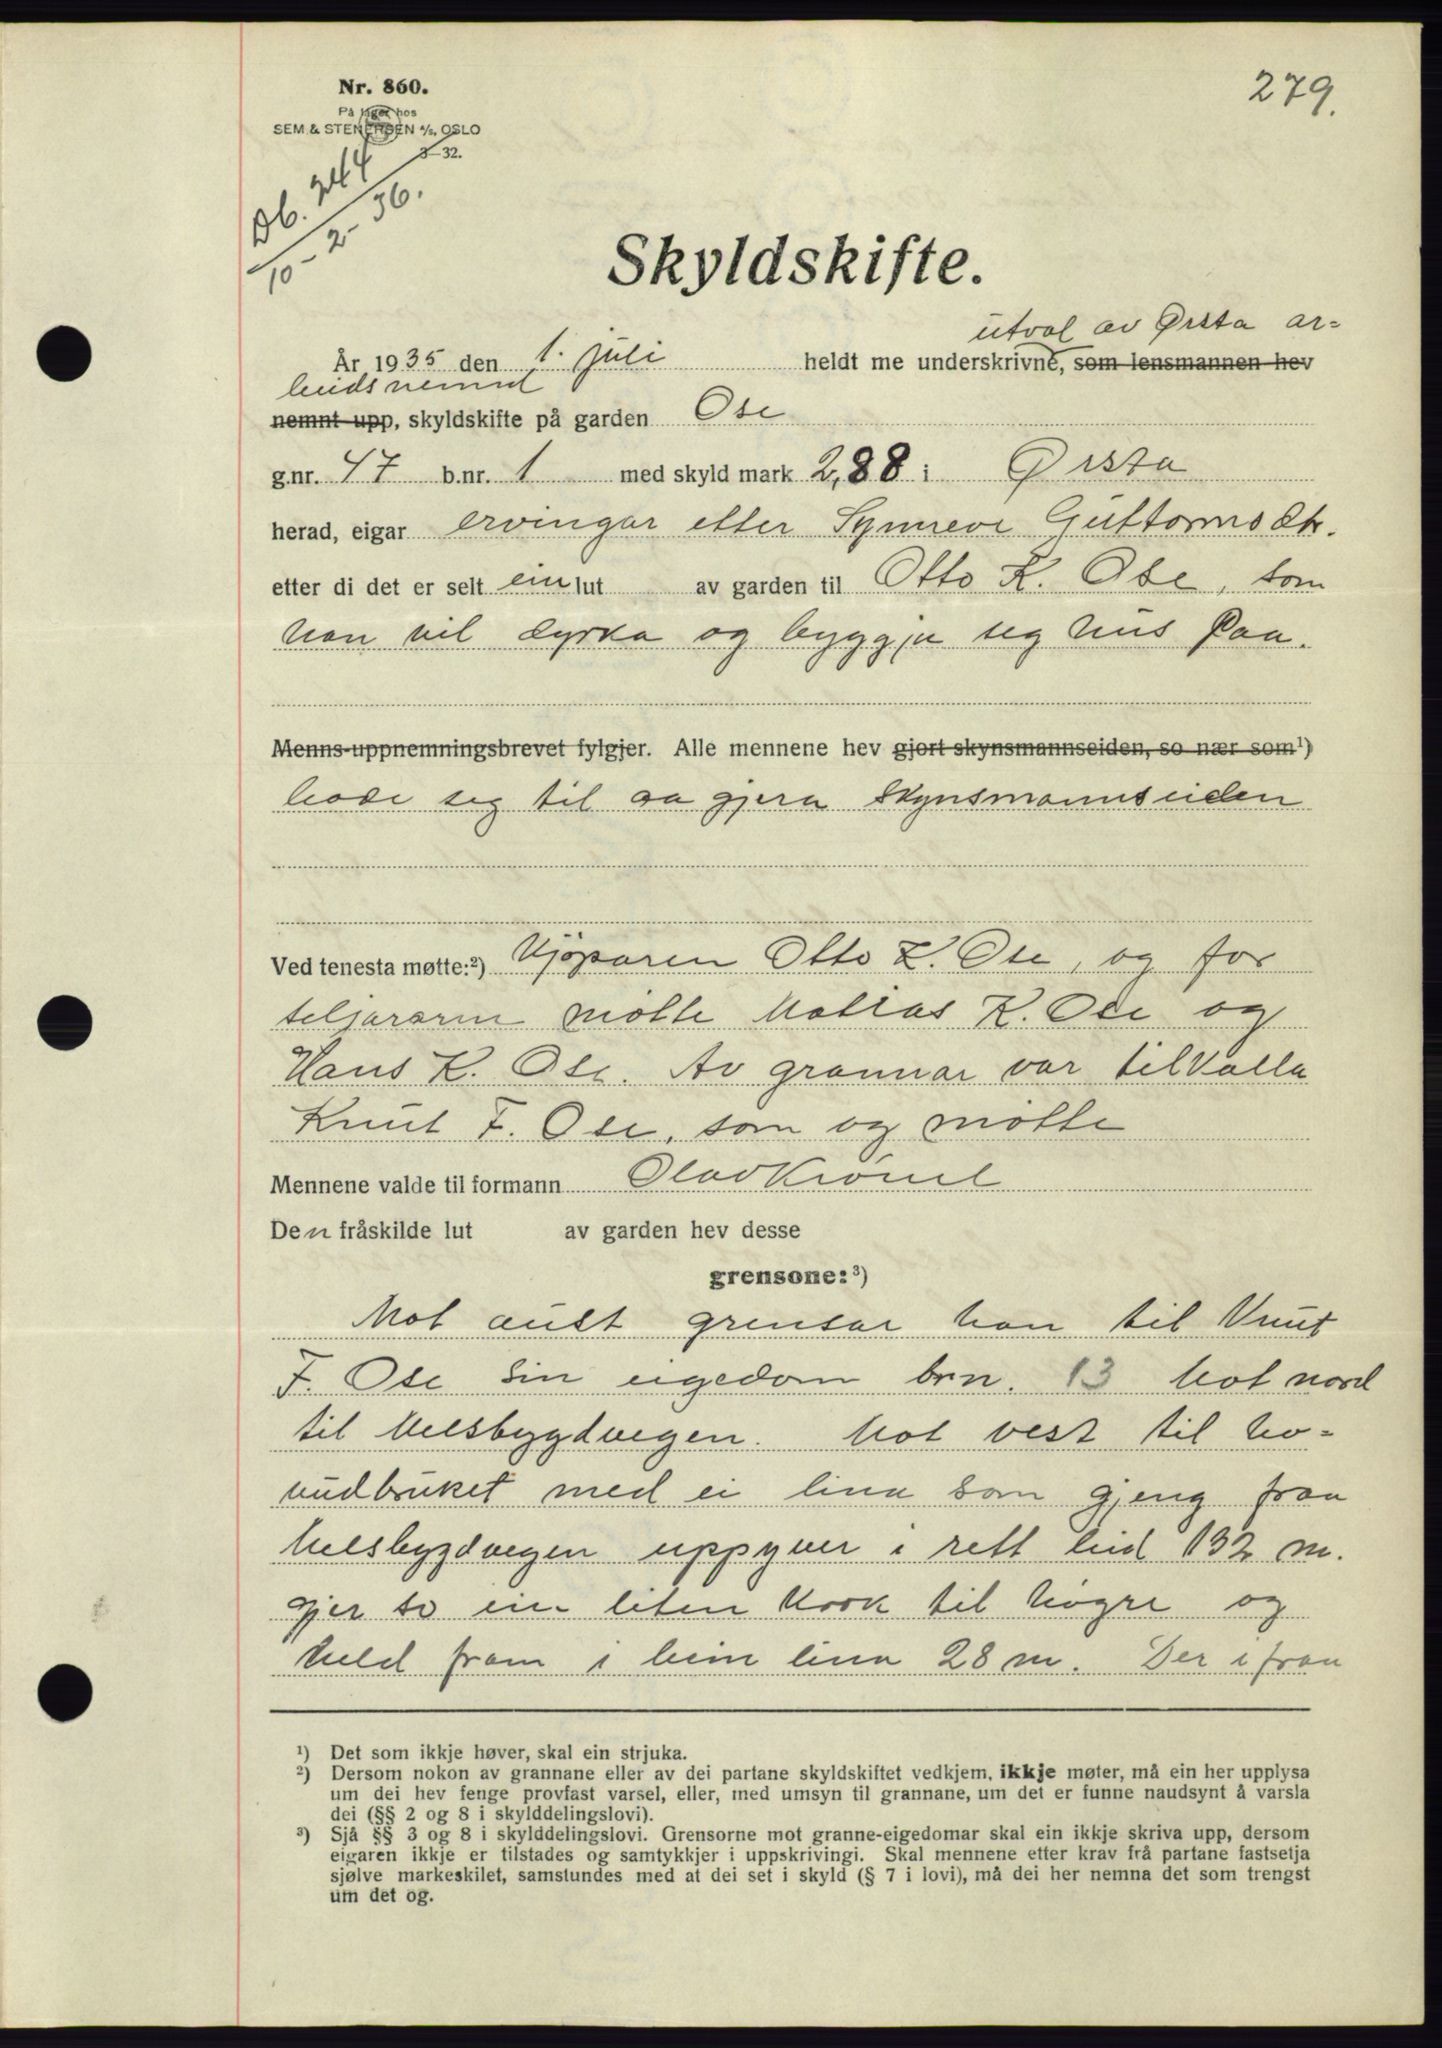 Nr. 860.
På lager hos
SEM & STENERSEN A/S, OSLO
3—32.
279.
Db. 244
10-2-36.
Skyldskifte.
utval av Ørsta ar=
År 1935 den 1. juli heldt me underskrivne, som lensmannen hev
beidsnemnd
nemnt upp, skyldskifte på garden Ose
g.nr. 47 b.nr. 1 med skyld mark 2,88 i Ørsta
herad, eigar ervingar etter Synneve Guttormsdtr.
etter di det er selt ein lut av garden til Otto K. Ose, som
han vil dyrka og byggja seg hus paa.
Menns-uppnemningsbrevet fylgjer. Alle mennene hev gjort skynsmannseiden, so nær som¹)
bode seg til aa gjera skynsmannseiden
Ved tenesta møtte:²) Kjøparen Otto K. Ose, og for
seljararne møtte Matias K. Ose og
Hans K. Ose. Av grannar var tilkalla
Knut F. Ose, som og møtte
Mennene valde til formann Olav Kvonil
Den fråskilde lut av garden hev desse
grensone:³)
Mot aust grensar han til Knut
F. Ose sin eigedom brn. 13 Mot nord
til Melsbygdvegen. Mot vest til ho-
vudbruket med ei lina som gjeng fraa
Melsbygdvegen uppyver i rett leid 132 m.
gjer so ein liten krok til høgre og
held fram i bein lina 28 m. Der ifraa
¹) Det som ikkje høver, skal ein strjuka.
²) Dersom nokon av grannane eller av dei partane skyldskiftet vedkjem, ikkje møter, må ein her upplysa
um dei hev fenge provfast varsel, eller, med umsyn til grannane, um det er funne naudsynt å varsla
dei (§§ 2 og 8 i skylddelingslovi).
³) Sjå §§ 3 og 8 i skylddelingslovi. Grensorne mot granne-eigedomar skal ein ikkje skriva upp, dersom
eigaren ikkje er tilstades og samtykkjer i uppskrivingi. Skal mennene etter krav frå partane fastsetja
sjølve markeskilet, samstundes med at dei set i skyld (§ 7 i lovi), må dei her nemna det som trengst
um det og.